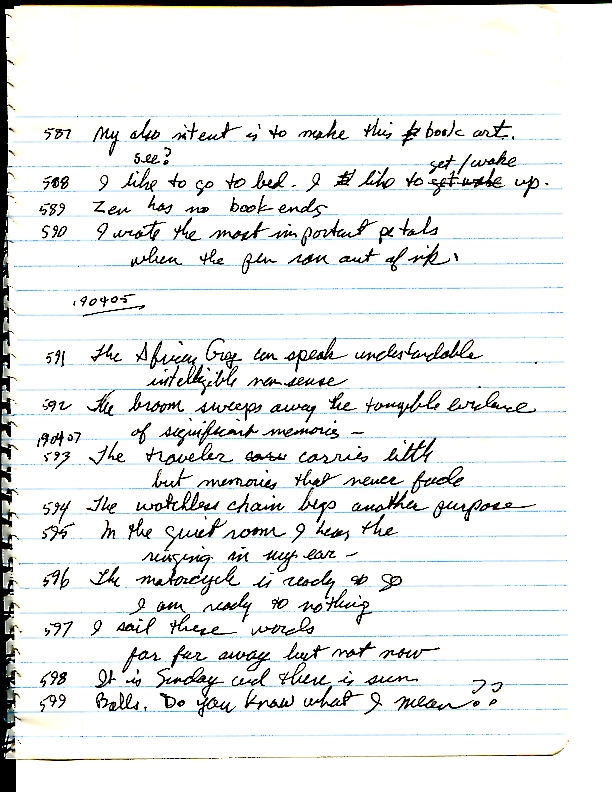 587 My also intent is to make this book art.
see?
get/wake
588 I like to go to bed. I like to get wake up.
589 Zen has no book ends
590 I wrote the most important petals
when the pen ran out of ink.
190405
591 The African Grey can speak understandable
intelligible nonsense
592 The broom sweeps away the tangible evidence
of significant memories –
190407
593 The traveler carries little
but memories that never fade
594 The watchless chain begs another purpose
595 In the quiet room I hear the
ringing in my ear –
596 The motorcycle is ready to go
I am ready to nothing
597 I sail these words
far far away but not now
598 It is Sunday and there is sun
599 Balls. Do you know what I mean??